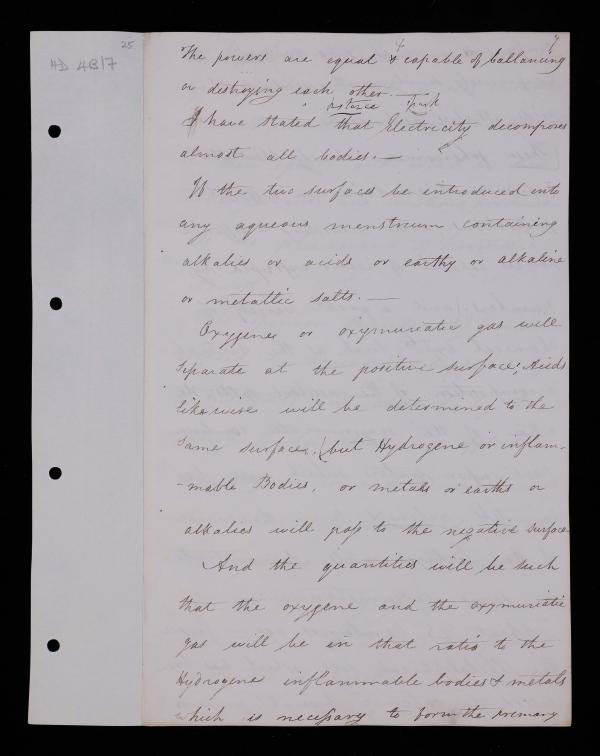 25
HD 4B/7
4
7
The powers are equal & capable of ballancing
or destroying each other. —
I have stated that Electricity decomposes
almost all bodies. —
If the two surfaces be introduced into
any aqueous menstruum containing
alkalies or acids or earthy or alkaline
or metallic salts. —
Oxygene or oxymuriatic gas will
separate at the positive surface; Acids
likewise will be determined to the
same surface, (but Hydrogene or inflam-
-mable Bodies, or metals or earths or
alkalies will pass to the negative surface
And the quantities will be such
that the oxygene and the oxymuriatic
gas will be in that ratio to the
Hydrogene inflammable bodies & metals
which is necessary to form the primary